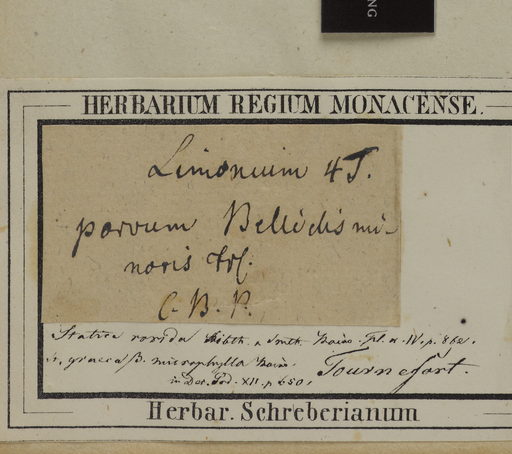 NG
HERBARIUM REGIUM MONACENSE.
Limonium 4 T.
parvum Bellidis mi-
noris fol.
C. B. P.
Statice rorida Sibth. & Smth. Boiss. Fl. or. IV. p. 862.
graeca β. microphylla Boiss.
in Dec. Prod. XII. p. 650.
Tournefort.
Herbar. Schreberianum